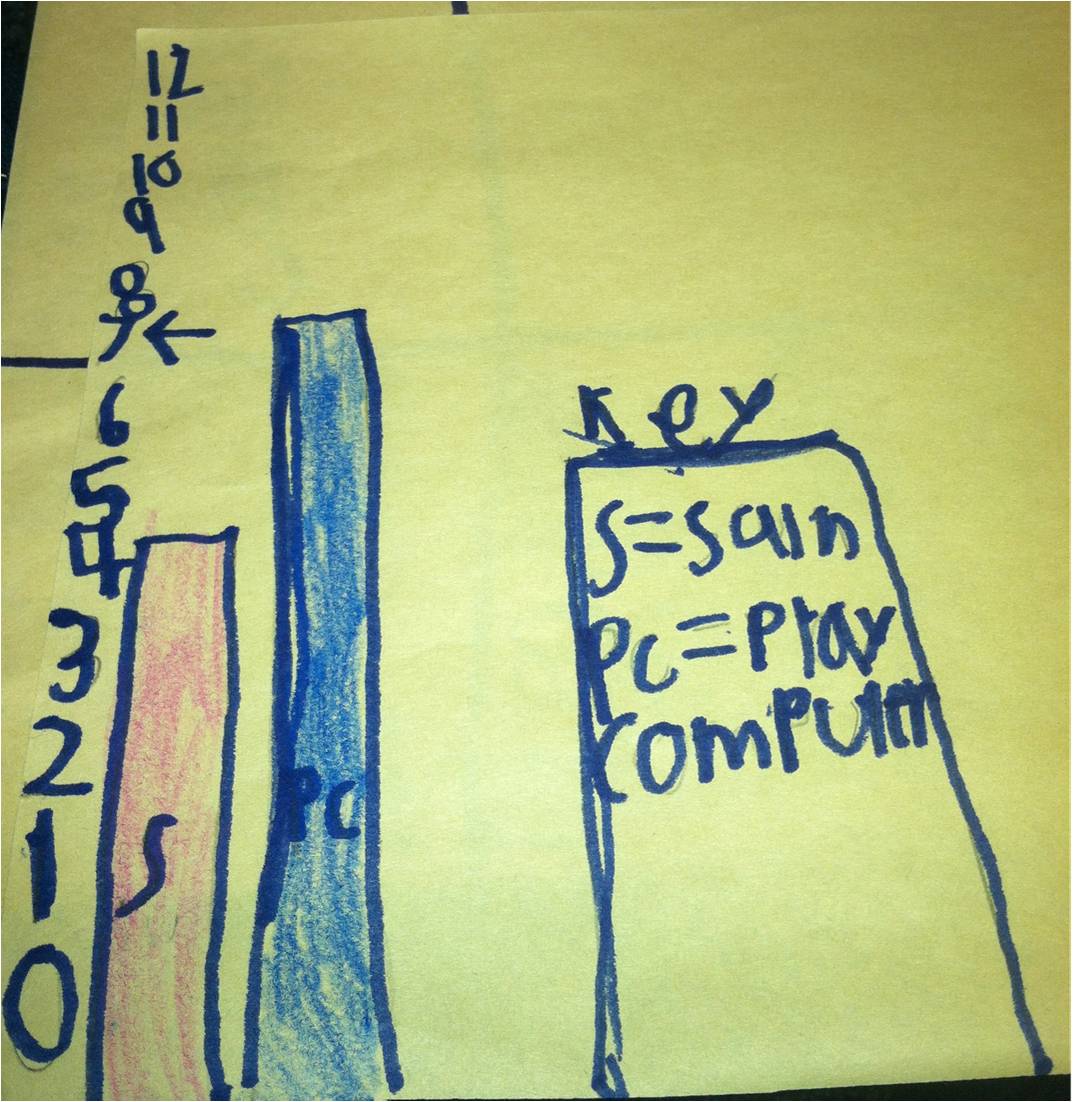 12
11
10
9
8
7 ←
6
5
4
3
2
1
0
S
PC
Key
S=Sain
PC=Play
Computer